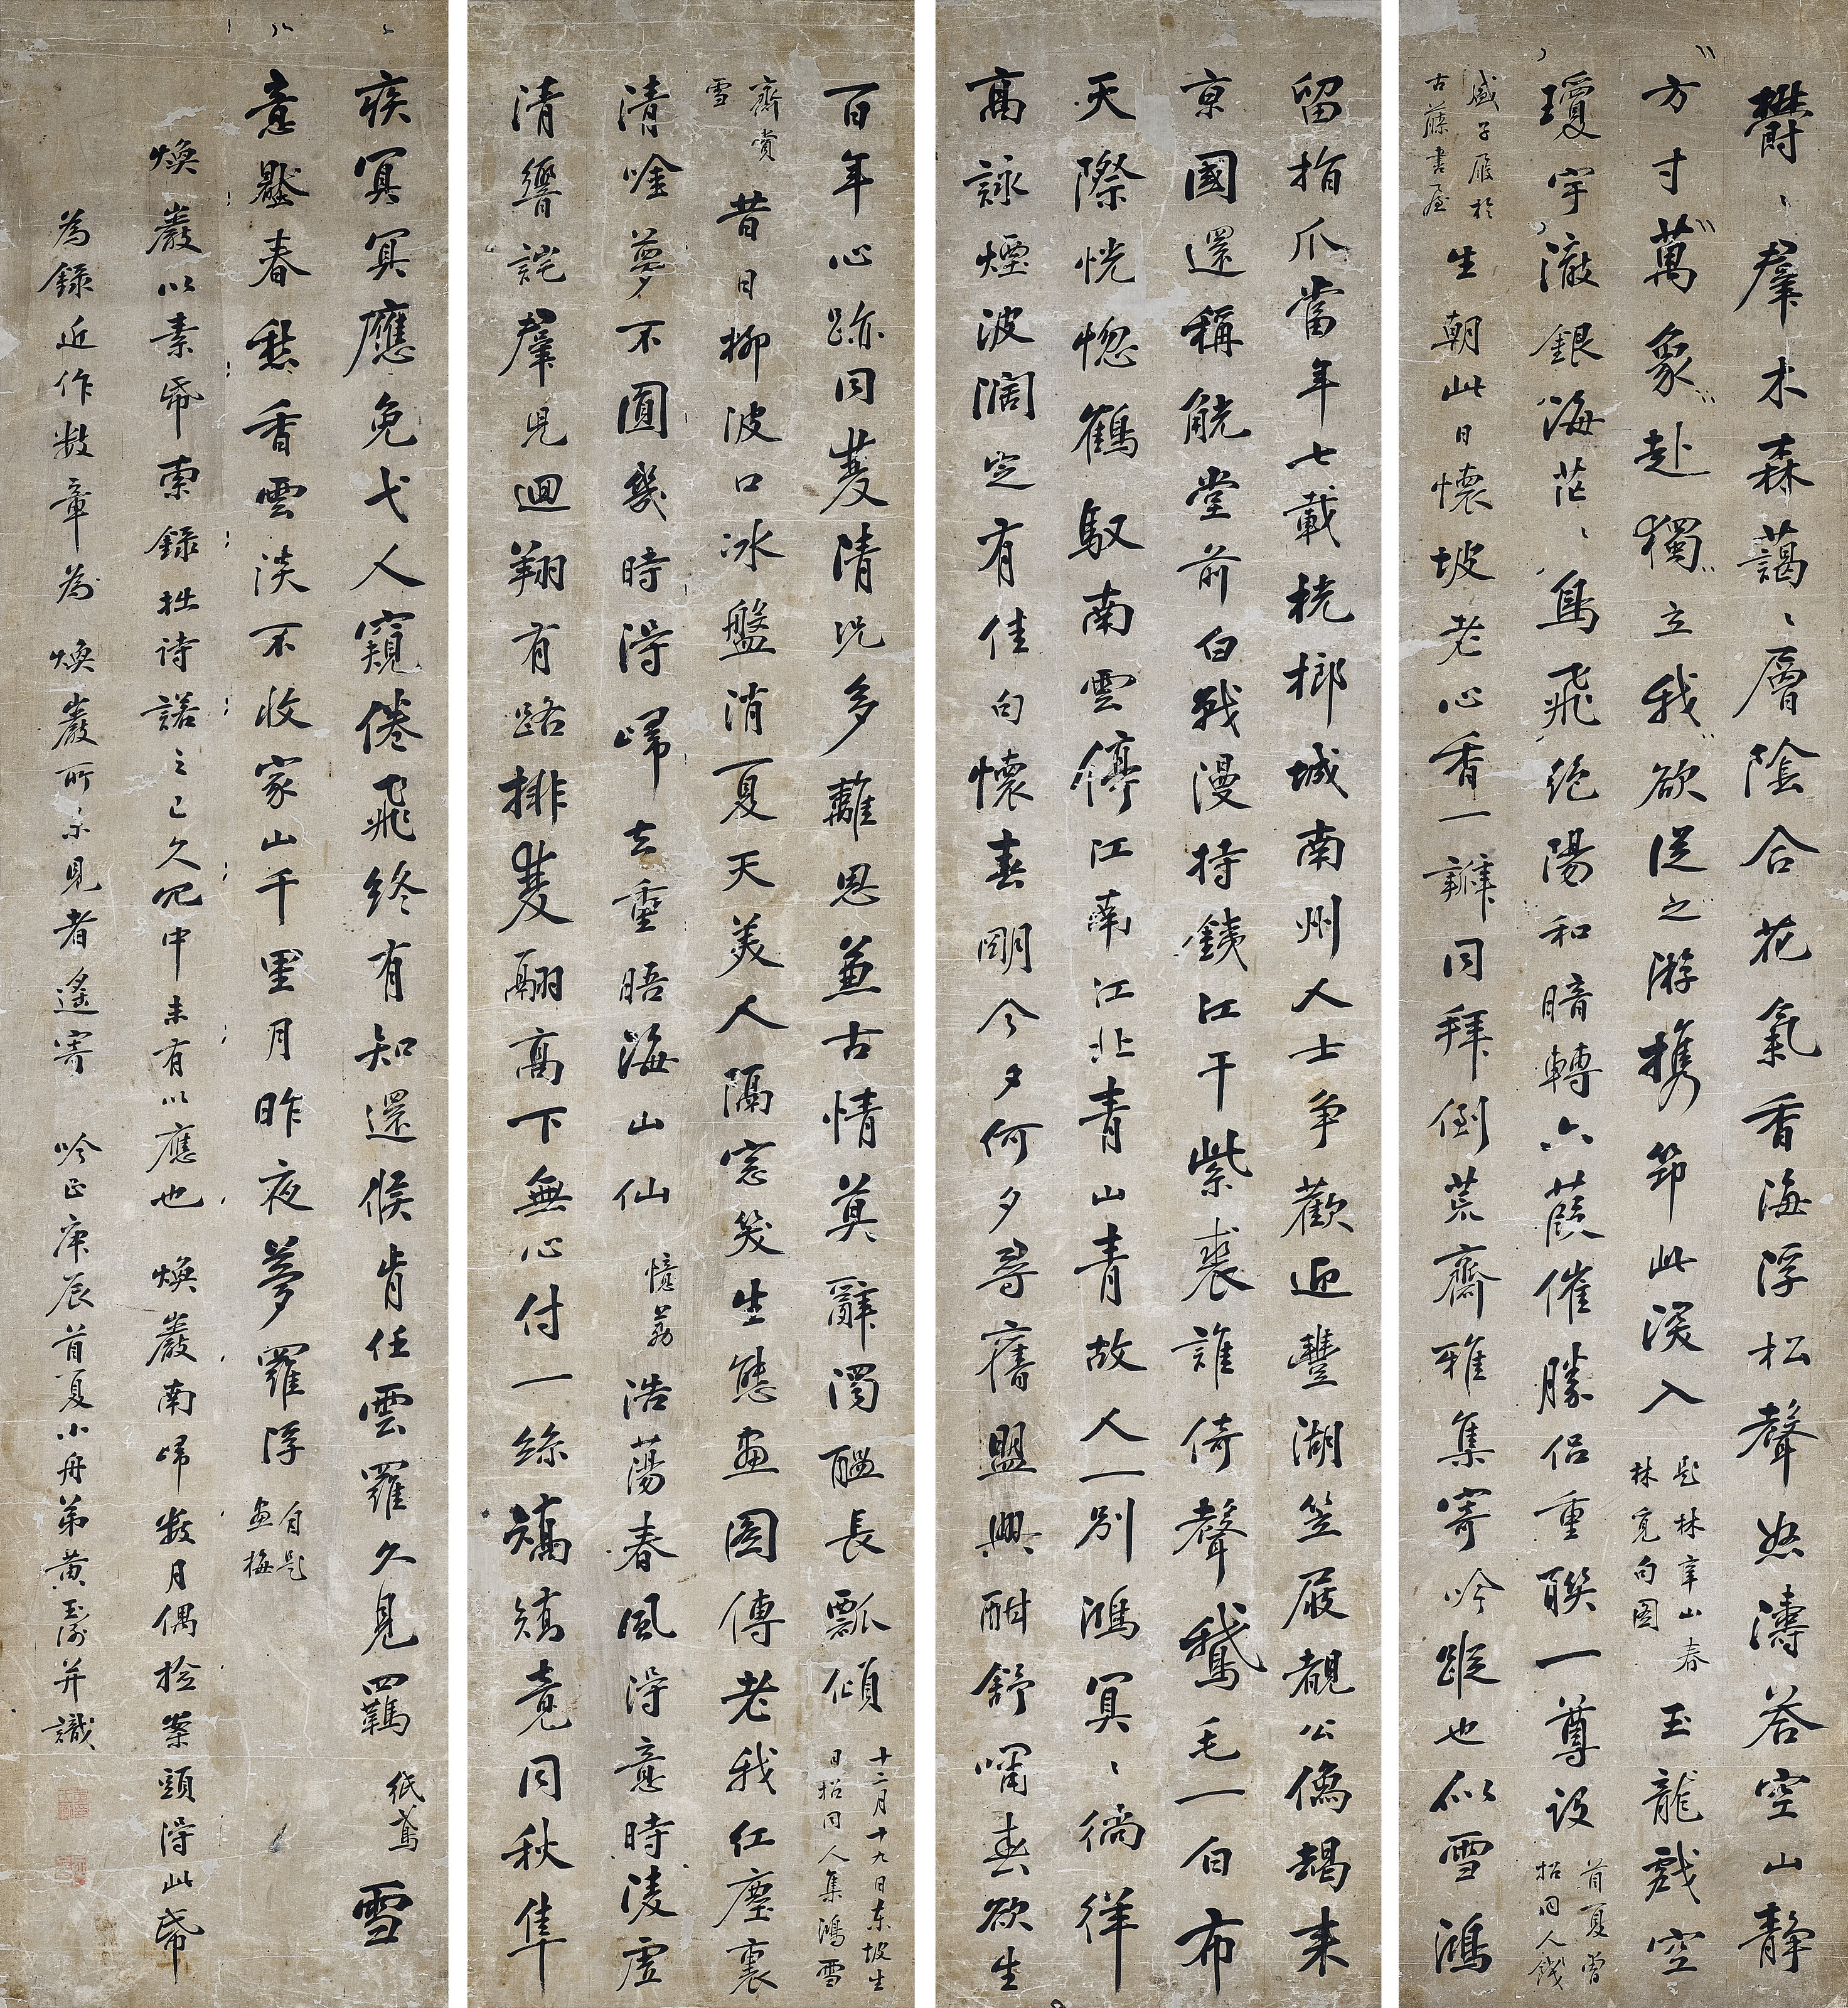 欝、羣木森藹、層陰合花氣香海浮松聲怒濤答空山靜
方寸萬象赴獨立我欲從之游携筇此深入
題林章山春
林覓句圖
玉龍戲空
瓊宇澈銀海茫、鳥飛絶陽和暗轉六葭催勝侶重聯一尊設
首夏曾
招同人餞
盛子履於
古藤書屋
生朝此日懷坡老心香一瓣同拜倒荒齋雅集寄吟蹤也似雪鴻
留指爪當年七載桄榔城南州人士爭歡迎豐湖笠屐覩公儋朅來
京國還稱觥堂前白戰漫持鐵江干紫裘誰倚聲鵞毛一白布
天際恍惚鶴馭南雲停江南江北青山青故人一別鴻冥、徜徉
高詠煙波濶定有佳句懷春明今夕何夕尋舊盟興酣舒嘯春欲生
百年心跡同菱清況多離思兼古情莫辭濁醞長瓢傾
十二月十九日東坡生
日招同人集鴻雪
齋賞
雪
昔日柳波口冰盤消夏天美人隔窓笑生態畫圖傳老我紅塵裏
清吟夢不圓幾時得歸去重晤海山仙
憶荔
浩蕩春風得意時凌虛
清響詫羣兒迴翔有路排雙翮高下無心付一絲矯矯竟同秋隼
疾冥冥應免弋人窺倦飛終有知還候肯任雲羅久見羈
紙鳶
雪
意黯春愁香雲淡不收家山千里月昨夜夢羅浮
自題
畫梅
煥巖以素帋索錄拙詩諾之已久冗中未有以應也 煥巖南歸數月偶撿案頭得此帋
為錄近作數章為 煥巖所未見者遙寄 吟正庚辰首夏小舟弟黃玉衡并識